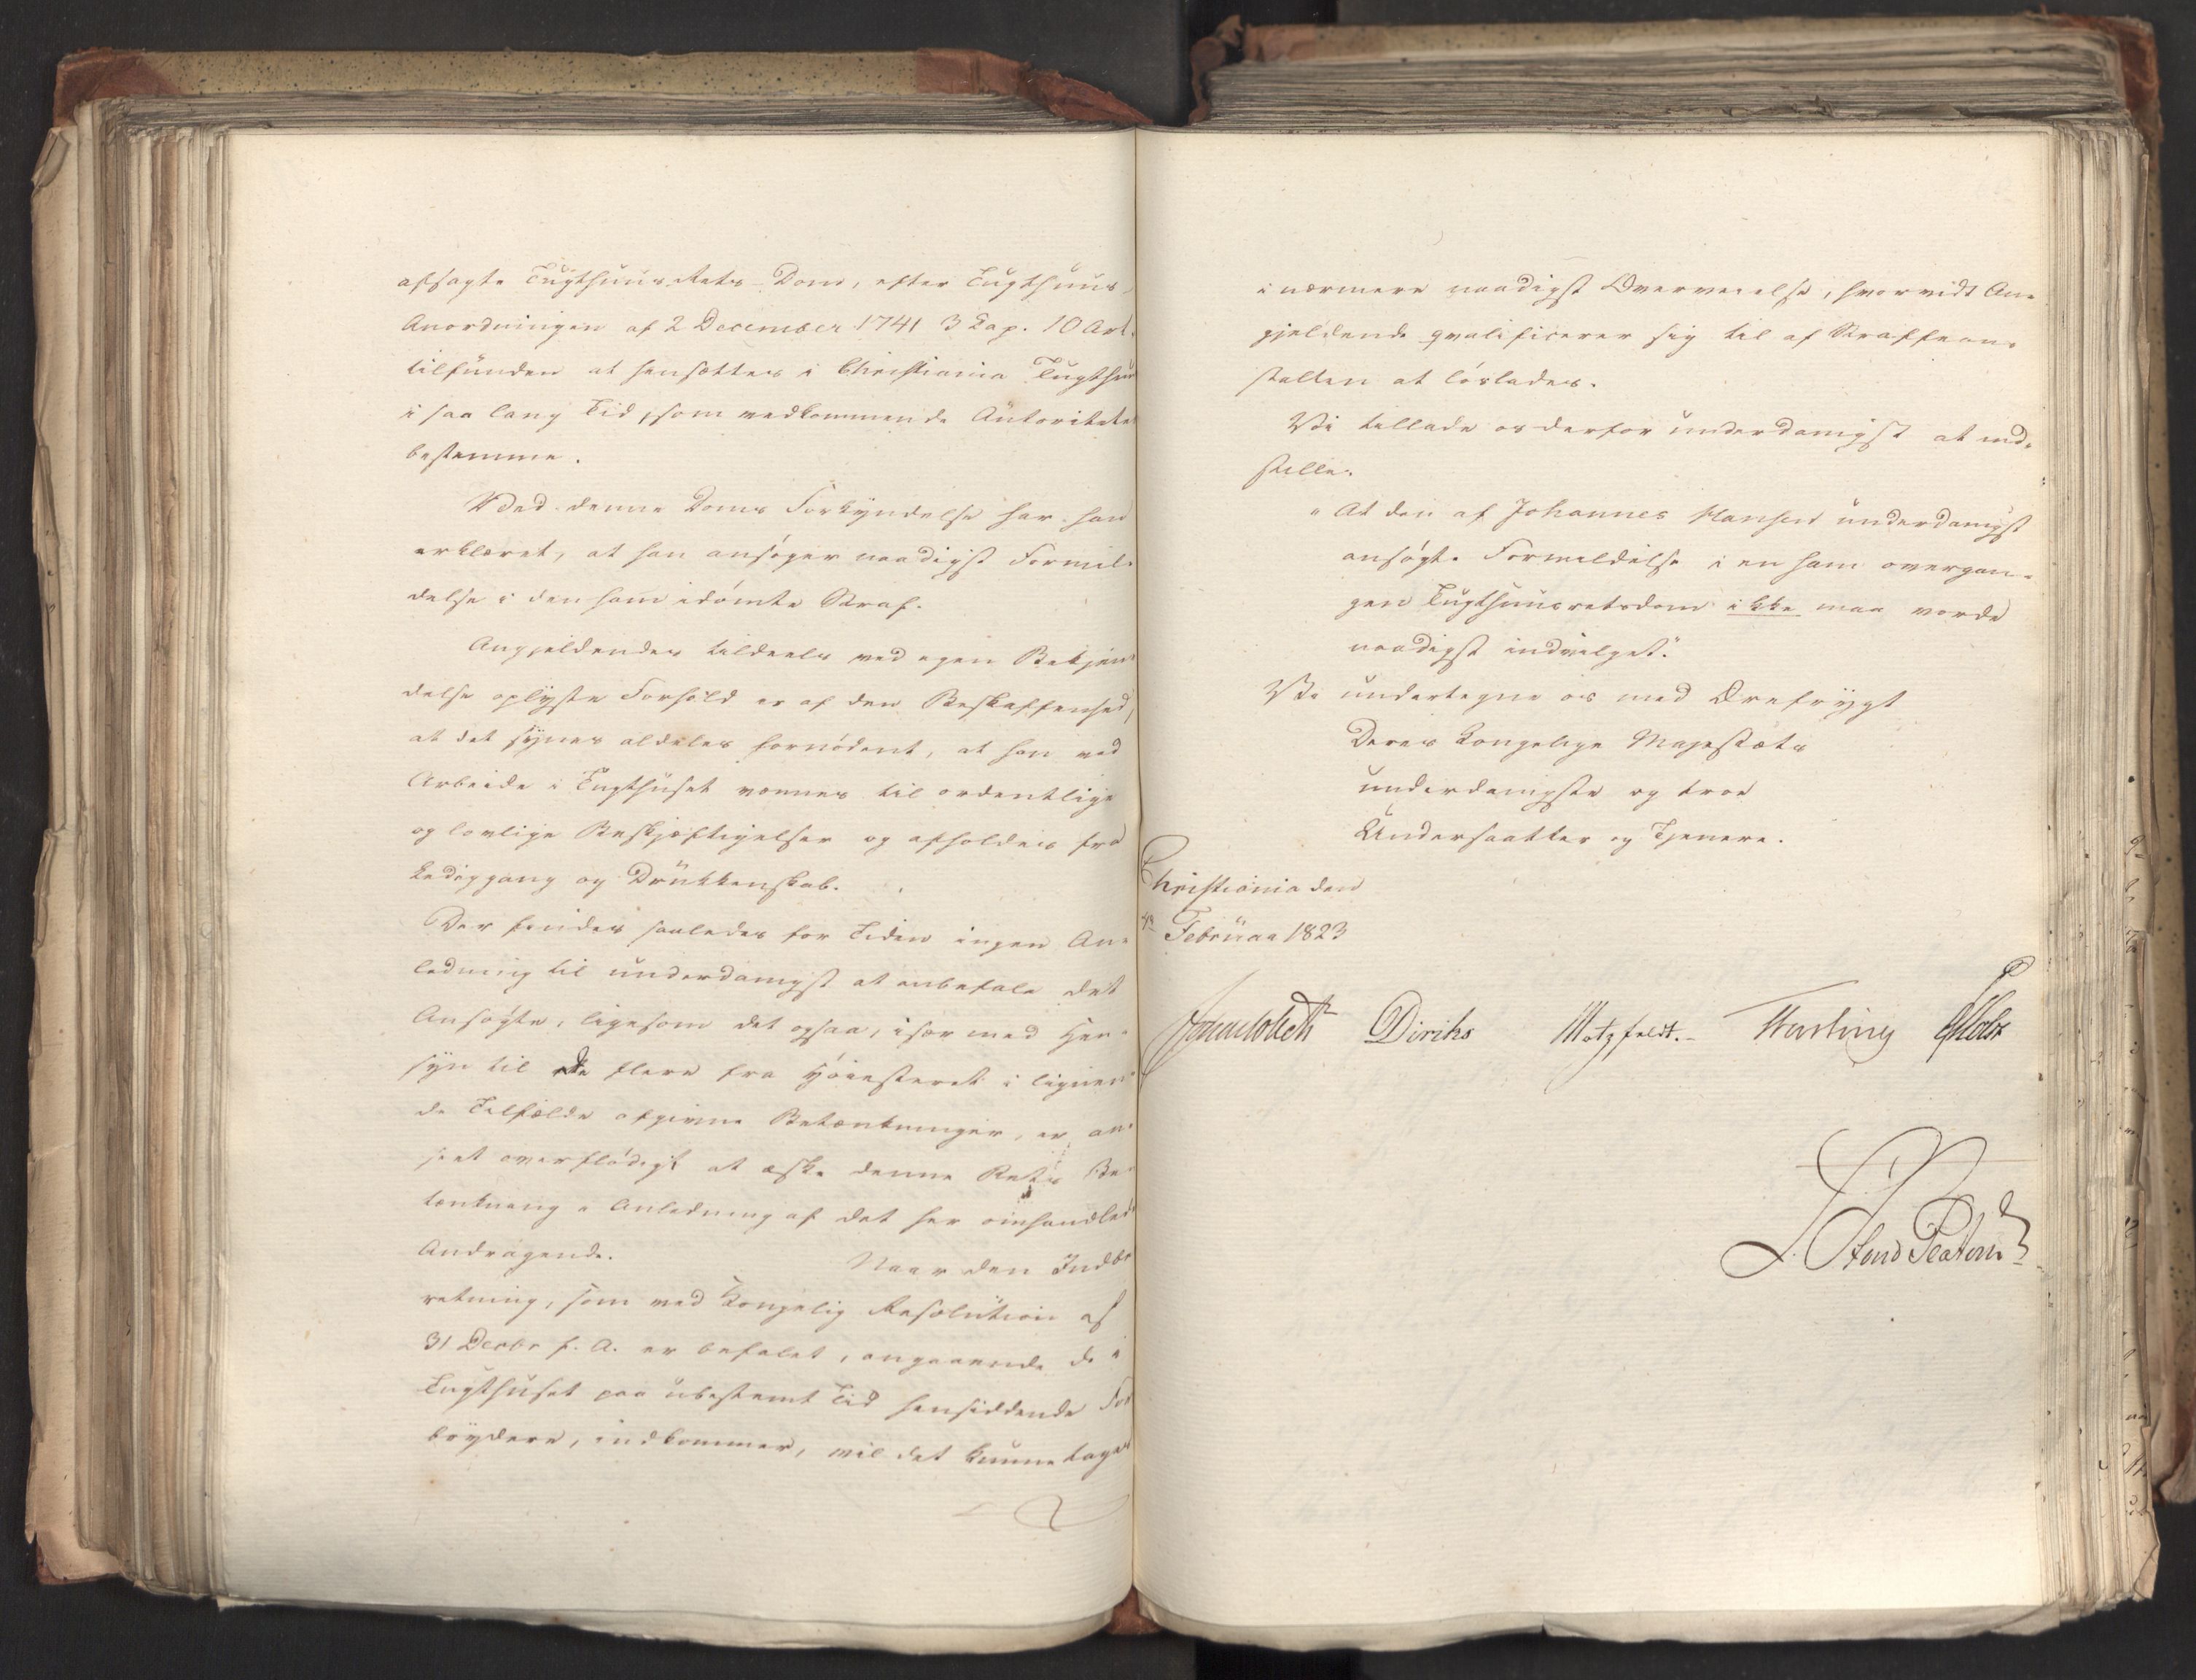 afsagte Tugthuus-Rets-Dom, efter Tugthuus-
Anordningen af 2 December 1741 3 Cap. 10 Art.
tilfunden at hensættes i Christiania Tugthuus
i saa lang Tid, som vedkommende Autoriteter
bestemme.
Ved denne Doms Forkyndelse har han
erklæret, at han ansøger naadigst Formil-
delse i den ham idømte Straf.
Angjeldendes tildeels ved egen Bekjen-
delse oplyste Forhold er af den Beskaffenhed,
at det synes aldeles fornødent, at han ved
Arbeide i Tugthuset vænnes til ordentlige
og lovlige Beskjæftigelser og afholdes fra
Lediggang og Drukkenskab.
Der findes saaledes for Tiden ingen An-
ledning til underdanigst at anbefale det
Ansøgte, ligesom det ogsaa, især med Hen-
syn til de flere fra Høiesteret i lignen-
de Tilfælde afgivne Betænkninger, er an-
seet overflødigt at æske denne Rets Be-
tænkning i Anledning af det her omhandlede
Andragende.
Naar den Indbe-
retning, som ved Kongelig Resolution af
31 Decbr f. A. er befalet, angaaende de i
Tugthuset paa ubestemt Tid hensiddende For-
brydere, indkommer, vil det kunne tages
i nærmere naadigst Overveielse, hvorvidt An-
gjeldende qvalificerer sig til af Straffean-
stalten at løslades.
Vi tillade os derfor underdanigst at ind-
stille:
"At den af Johannes Hansen underdanigst
ansøgte Formildelse i en ham overgan-
gen Tugthuusretsdom ikke maa vorde
naadigst indvilget."
Vi undertegne os med Ærefrygt
Deres Kongelige Majestæts
underdanigste og troe
Undersaatter og Tjenere.
Christiania den
4de Februar 1823
Diriks Motzfeldt. Fasting